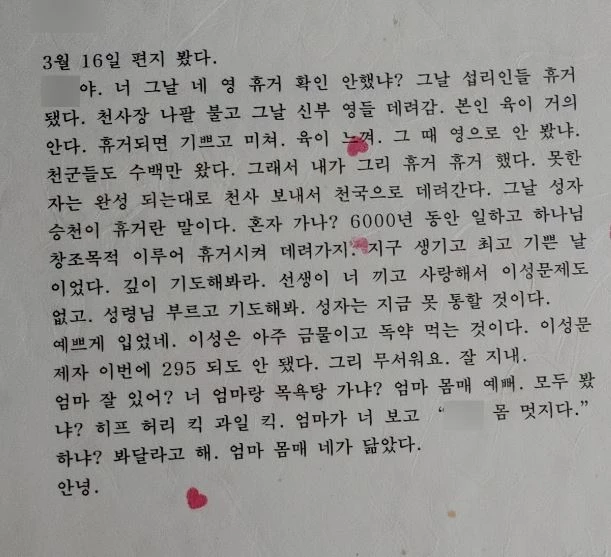 3월 16일 편지 봤다.
야. 너 그날 네 영 휴거 확인 안했냐? 그날 섭리인들 휴거
됐다. 천사장 나팔 불고 그날 신부 영들 데려감. 본인 육이 거의
안다. 휴거되면 기쁘고 미쳐. 육이 느껴. 그 때 영으로 안 봤냐.
천군들도 수백만 왔다. 그래서 내가 그리 휴거 휴거 했다. 못한
자는 완성 되는대로 천사 보내서 천국으로 데려간다. 그날 성자
승천이 휴거란 말이다. 혼자 가나? 6000년 동안 일하고 하나님
창조목적 이루어 휴거시켜 데려가지. 지구 생기고 최고 기쁜 날
이었다. 깊이 기도해봐라. 선생이 너 끼고 사랑해서 이성문제도
없고. 성령님 부르고 기도해봐. 성자는 지금 못 통할 것이다.
예쁘게 입었네. 이성은 아주 금물이고 독약 먹는 것이다. 이성문
제자 이번에 295 되도 안 됐다. 그리 무서워요. 잘 지내.
엄마 잘 있어? 너 엄마랑 목욕탕 가냐? 엄마 몸매 예뻐. 모두 봤
냐? 히프 허리 킥 과일 킥. 엄마가 너 보고 “ 몸 멋지다.”
하냐? 봐달라고 해. 엄마 몸매 네가 닮았다.
안녕.